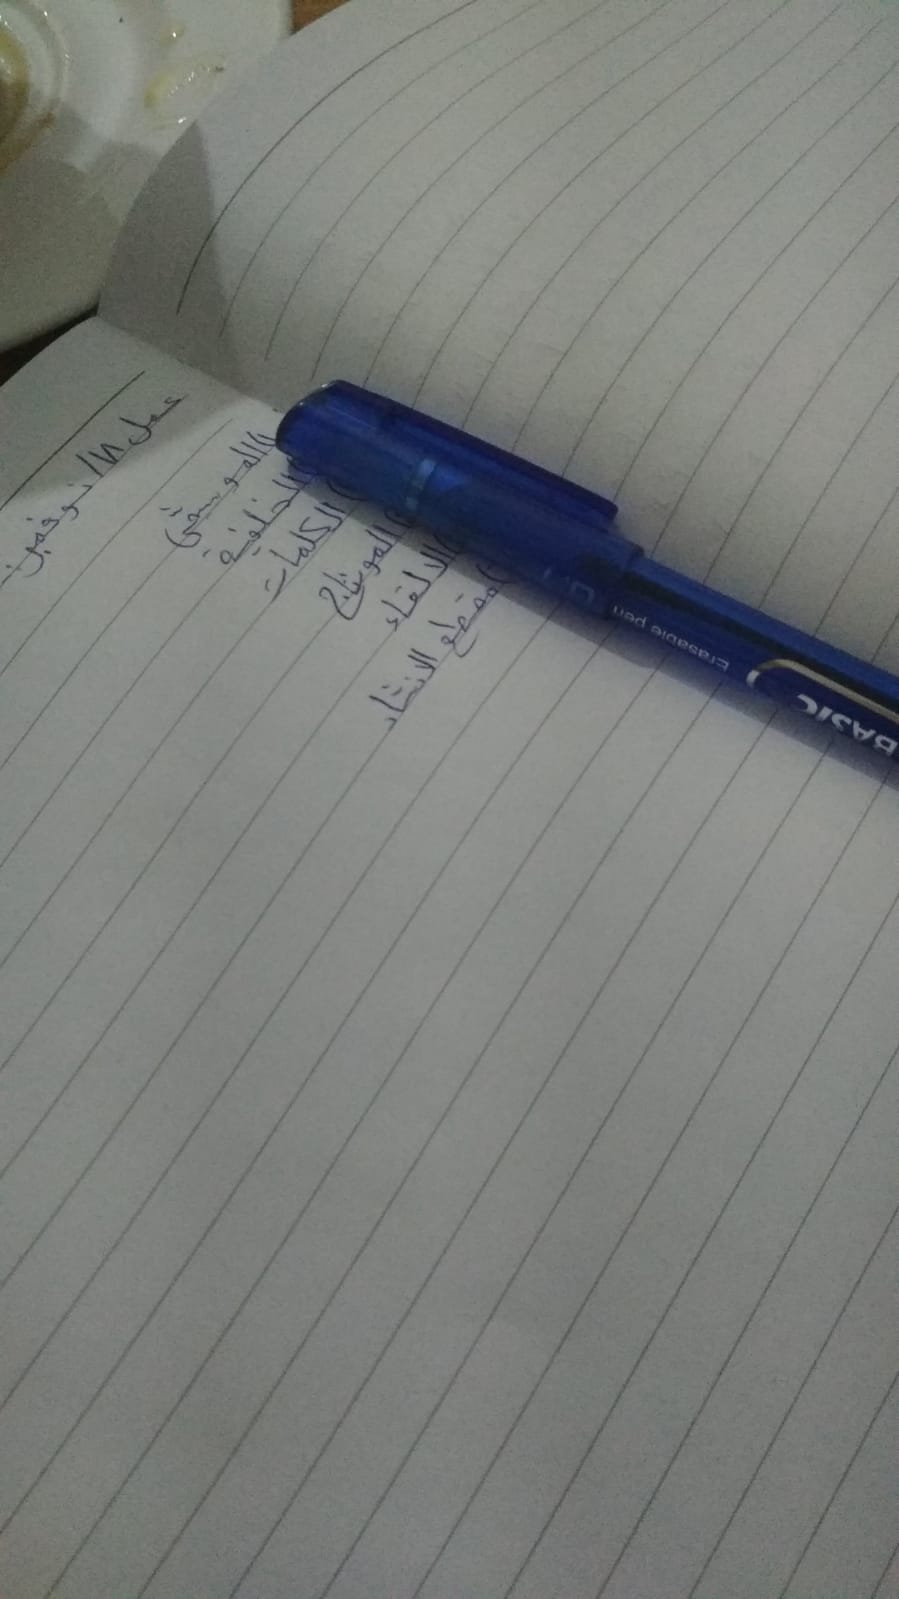 عمل ١٨/نوفمبر
الموسيقى
الخلفية
الكلمات
المونتاج
الالقاء
مقطع الانشاد
Erasable pen
BASIC